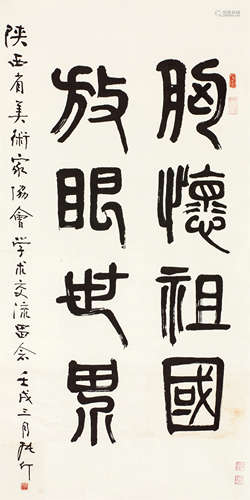 胸懷祖國
放眼世界
陝西省美術家協會学术交流留会壬戌三月